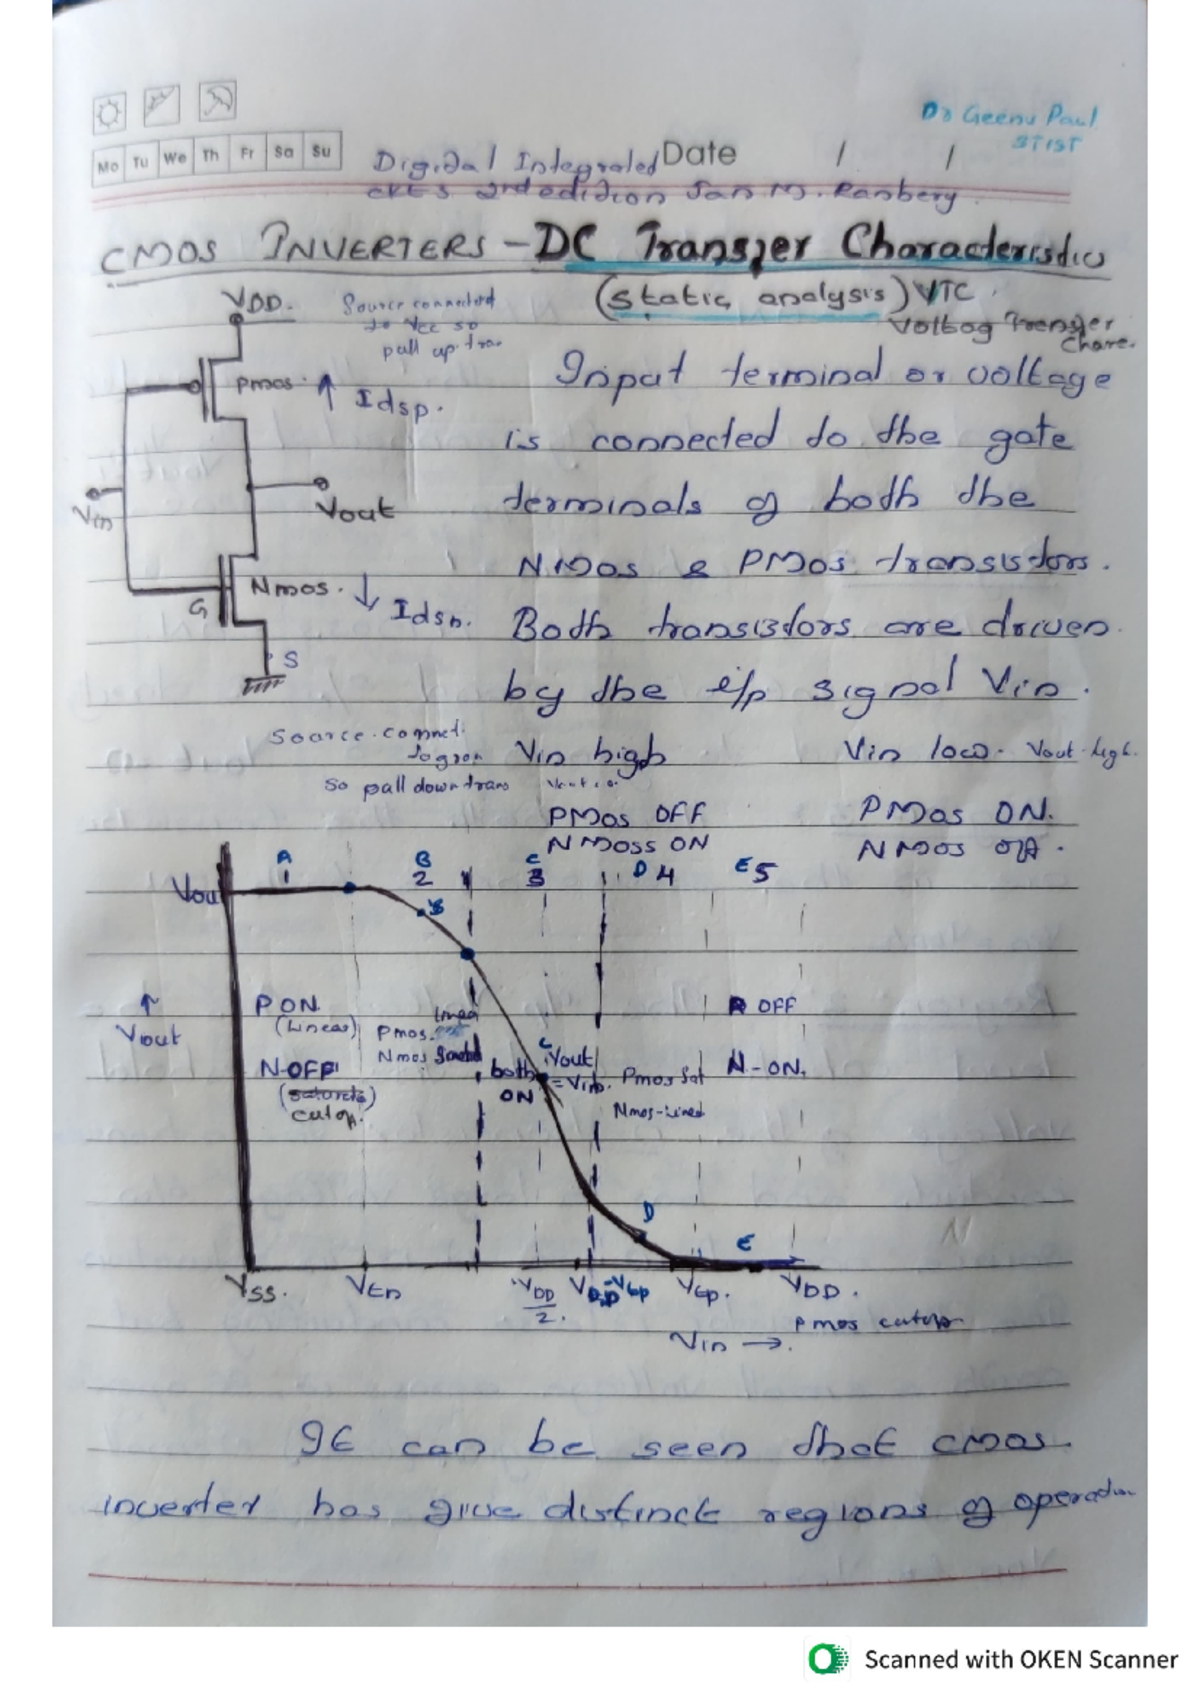 Dr Geenu Paul
STIST
Mo Tu We Th Fr Sa Su
Digital Integrated Date / /
CKTS 2nd edition Jan M. Rabaey
CMOS INVERTERS - DC Transfer Characteristics
(static analysis) VTC.
Voltag Transfer
Chare.
VDD.
Source connected
to Vcc so
pull up tran
Pmos. ↑ Idsp.
Vin
Vout
Nmos. ↓ Idsn.
G
S
Source connet.
to gron
so pull down trans
Input terminal or voltage
is connected to the gate
terminals of both the
NMOS & PMOS transistors.
Both transistors are driven
by the i/p signal Vin.
Vin high
PMOS OFF
NMOSS ON
Vin low - Vout high.
PMOS ON.
NMOS off.
A B C D E
1 2 3 4 5
Vout
B
P ON
(Linear)
N-OFF
cutof.
Linea
Pmos.
Nmos
both
ON
C
Vout
= Vin.
Pmos Sat
Nmos-Linea
P OFF
N-ON.
↑
Vout
D
E
Vss. Vtn VDD/2. VDD-Vtp Vtp. VDD.
Pmos cutoff
Vin →.
It can be seen that cmos
inverter has five distinct regions of operation
Scanned with OKEN Scanner